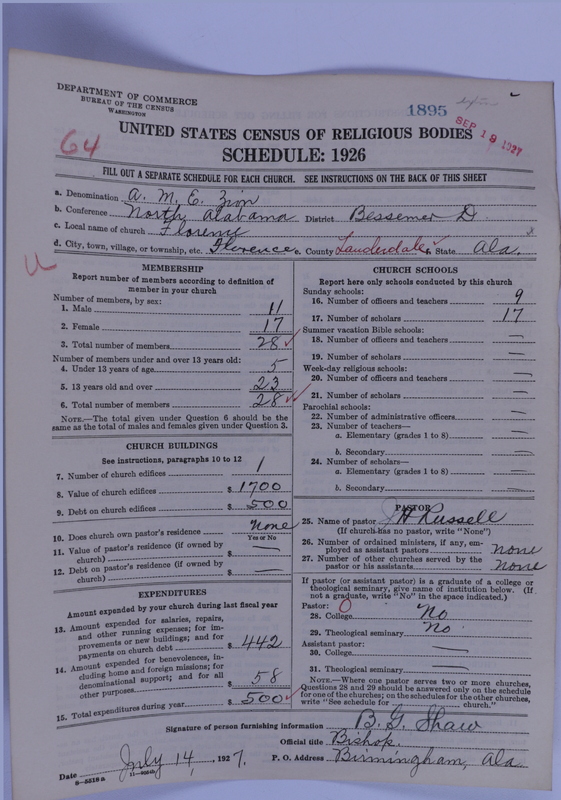 DEPARTMENT OF COMMERCE
BUREAU OF THE CENSUS
WASHINGTON
1895
SEP 19 1927
64
UNITED STATES CENSUS OF RELIGIOUS BODIES
SCHEDULE: 1926
FILL OUT A SEPARATE SCHEDULE FOR EACH CHURCH. SEE INSTRUCTIONS ON THE BACK OF THIS SHEET
a. Denomination A. M. E. Zion
b. Conference North Alabama District Bessemer D
c. Local name of church Florence
d. City, town, village, or township, etc. Florence County Lauderdale State Ala.
MEMBERSHIP
Report number of members according to definition of
member in your church
Number of members, by sex:
1. Male 11
2. Female 17
3. Total number of members 28
Number of members under and over 13 years old:
4. Under 13 years of age 5
5. 13 years old and over 23
6. Total number of members 28
NOTE.—The total given under Question 6 should be
same as the total of males and females given under Question 3.
CHURCH BUILDINGS
See instructions, paragraphs 10 to 12
7. Number of church edifices 1
8. Value of church edifices $ 1700
9. Debt on church edifices $ 500
10. Does church own pastor's residence none
Yes or No
11. Value of pastor's residence (if owned by
church) $ —
12. Debt on pastor's residence (if owned by
church) $ —
EXPENDITURES
Amount expended by your church during last fiscal year
13. Amount expended for salaries, repairs,
and other running expenses; for im-
provements or new buildings; and for
payments on church debt $ 442
14. Amount expended for benevolences, in-
cluding home and foreign missions; for
denominational support; and for all
other purposes $ 58
15. Total expenditures during year $ 500
CHURCH SCHOOLS
Report here only schools conducted by this church
Sunday schools:
16. Number of officers and teachers 9
17. Number of scholars 17
Summer vacation Bible schools:
18. Number of officers and teachers —
19. Number of scholars —
Week-day religious schools:
20. Number of officers and teachers —
21. Number of scholars —
Parochial schools:
22. Number of administrative officers —
23. Number of teachers—
a. Elementary (grades 1 to 8) —
b. Secondary —
24. Number of scholars—
a. Elementary (grades 1 to 8) —
b. Secondary —
PASTOR
25. Name of pastor J H Russell
(If church has no pastor, write "None")
26. Number of ordained ministers, if any, em-
ployed as assistant pastors none
27. Number of other churches served by the
pastor or his assistants none
If pastor (or assistant pastor) is a graduate of a college or
theological seminary, give name of institution below. (If
not a graduate, write "No" in the space indicated.)
Pastor: 0
28. College No
29. Theological seminary No
Assistant pastor:
30. College —
31. Theological seminary —
NOTE.—Where one pastor serves two or more churches,
Questions 28 and 29 should be answered only on the schedule
for one of the churches; on the schedules for the other churches,
write "See schedule for church."
Signature of person furnishing information B. G. Shaw
Official title Bishop.
Date July 14, 1927. P. O. Address Birmingham, Ala.
8-5518 a